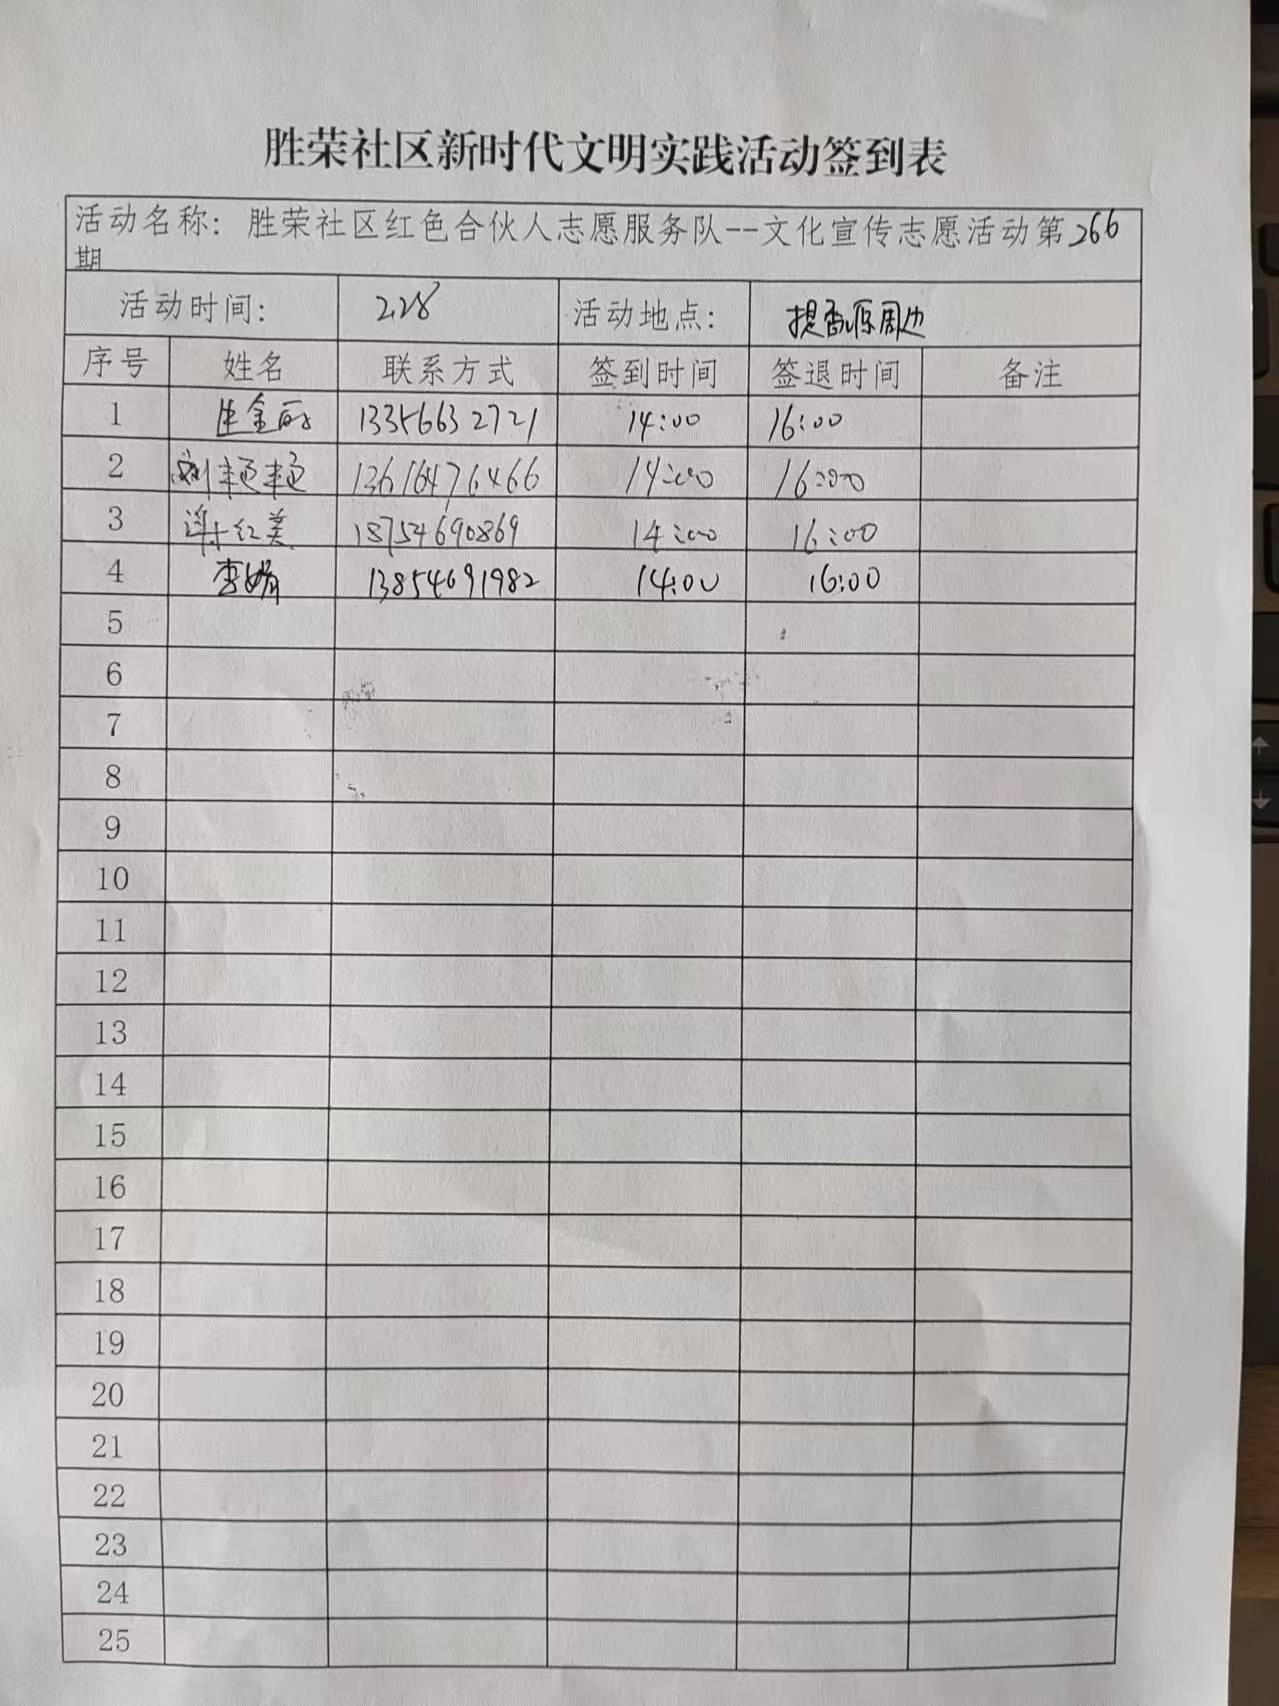 胜荣社区新时代文明实践活动签到表
活动名称：胜荣社区红色合伙人志愿服务队--文化宣传志愿活动第266
期
活动时间： 2.28 活动地点： 提香源周边
序号 姓名 联系方式 签到时间 签退时间 备注
1 金丽 13356632721 14:00 16:00
2 刘艳艳 13616476466 14:00 16:00
3 红美 18754690869 14:00 16:00
4 李娟 13854691982 14:00 16:00
5
6
7
8
9
10
11
12
13
14
15
16
17
18
19
20
21
22
23
24
25